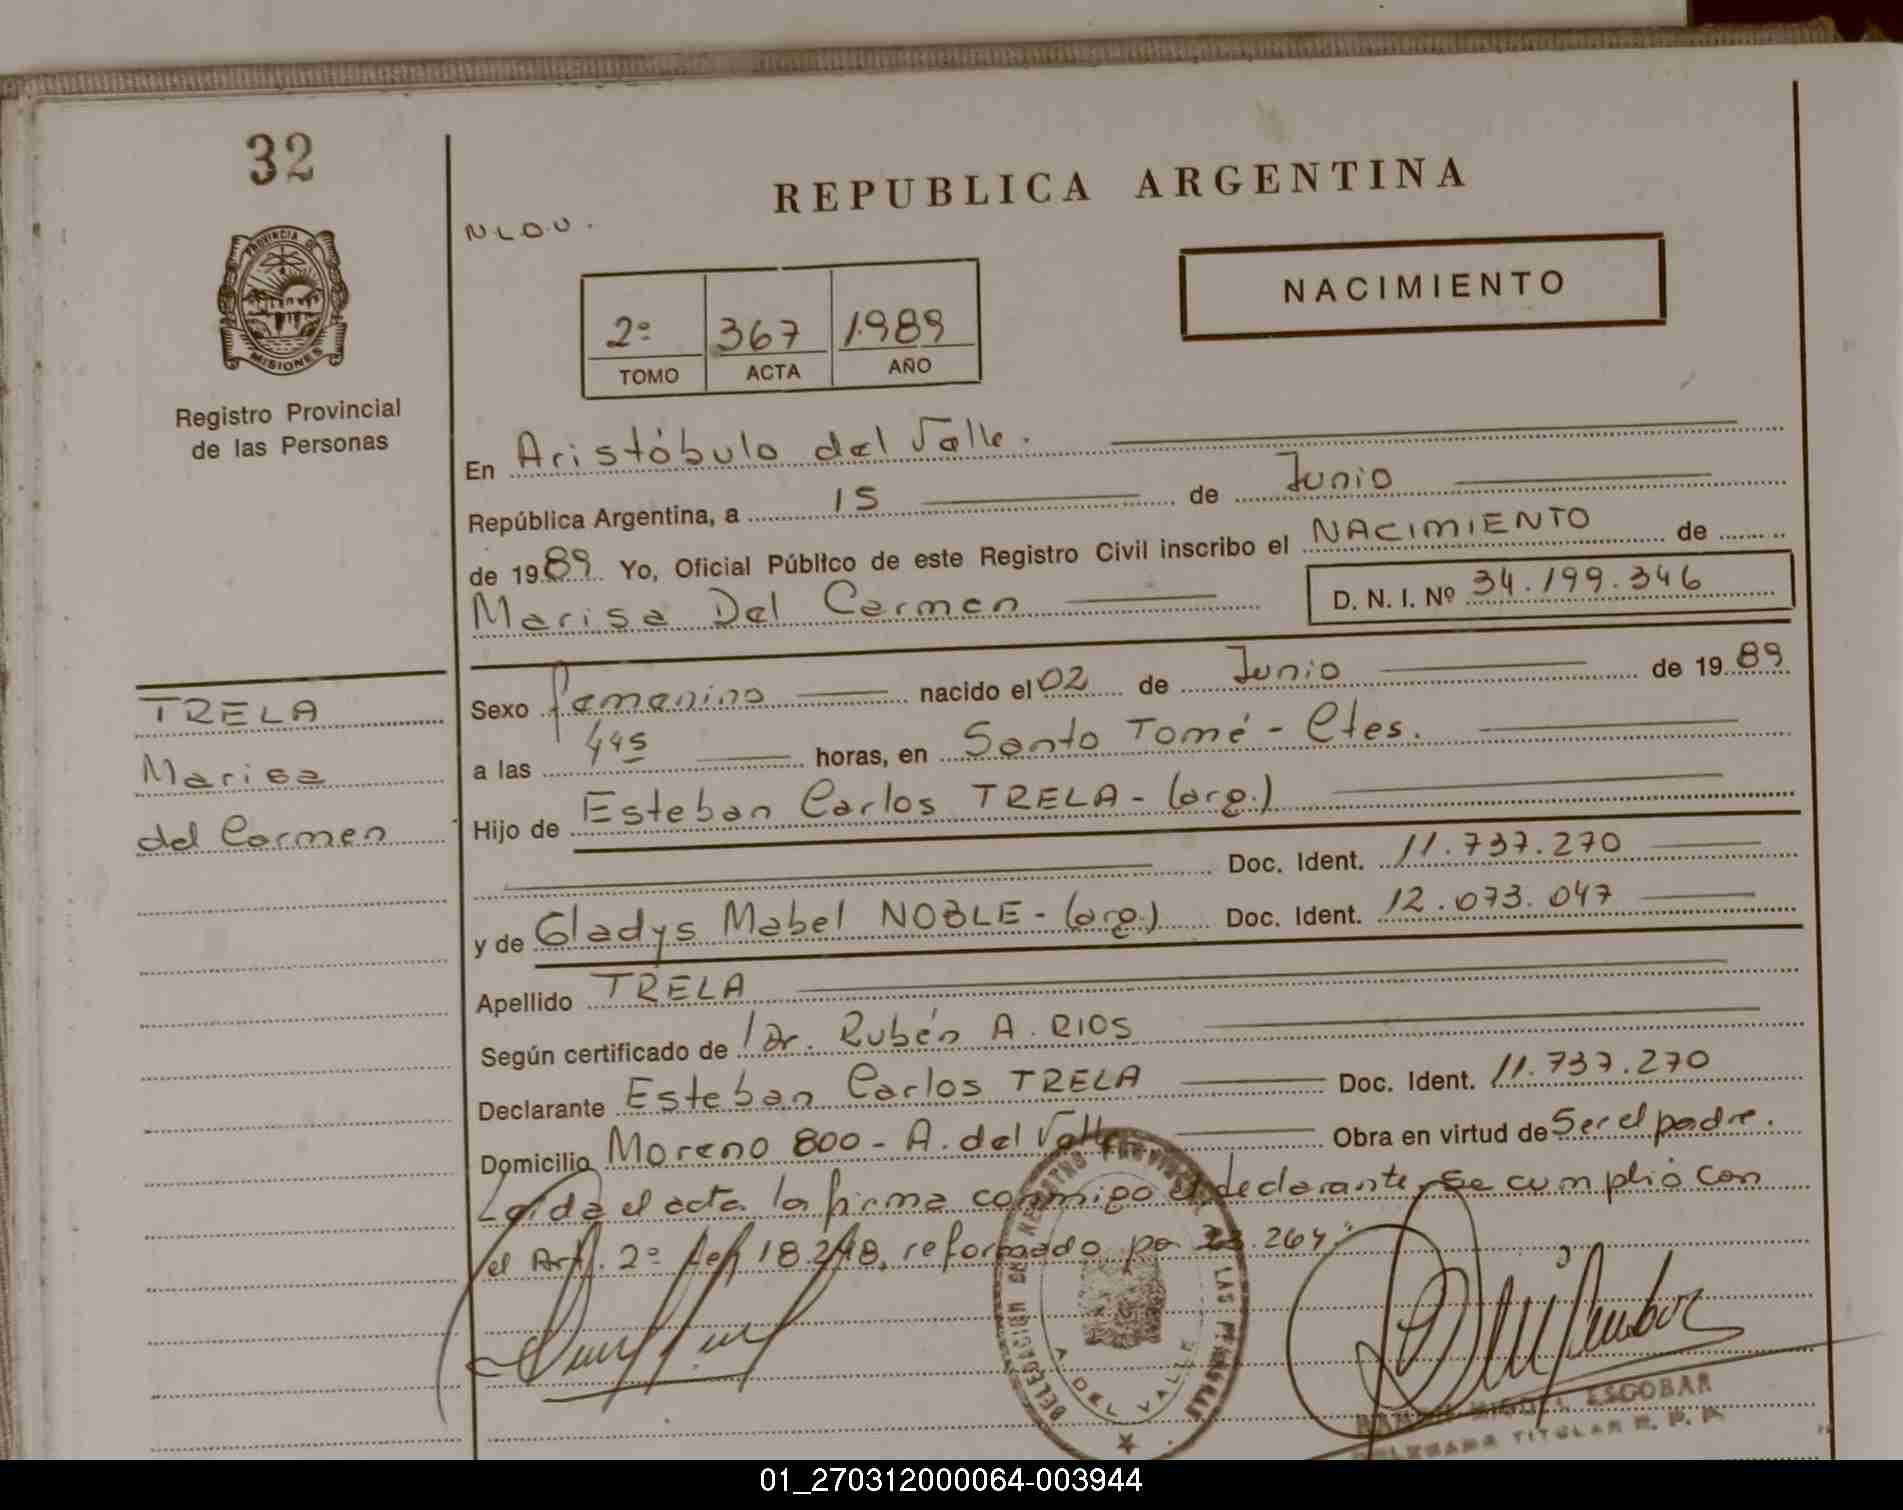 32
PROVINCIA DE
MISIONES
Registro Provincial
de las Personas
TRELA
Marisa
del Carmen
REPUBLICA ARGENTINA
N L D U .
NACIMIENTO
2º 367 1.989
TOMO ACTA AÑO
En Aristóbulo del Valle.
República Argentina, a 15 de Junio
de 19 89 Yo, Oficial Público de este Registro Civil inscribo el NACIMIENTO de
Marisa Del Carmen D. N. I. Nº 34.199.346
Sexo femenino nacido el 02 de Junio de 19 89
a las 4 45 horas, en Santo Tomé - Ctes.
Hijo de Esteban Carlos TRELA - (arg.)
Doc. Ident. 11.737.270
y de Gladys Mabel NOBLE - (arg.) Doc. Ident. 12.073.047
Apellido TRELA
Según certificado de Dr. Rubén A. RIOS
Declarante Esteban Carlos TRELA Doc. Ident. 11.737.270
Domicilio Moreno 800 - A. del Valle Obra en virtud de Ser el padre.
Leída el acta la firma conmigo el declarante, se cumplió con
el Art. 2º Ley 18.248, reformado por 23.264.
DELEGACION DEL REGISTRO PROVINCIAL DE LAS PERSONAS
A. DEL VALLE
RAMON MIGUEL ESCOBAR
DELEGADO TITULAR R. P. P.
01_270312000064-003944